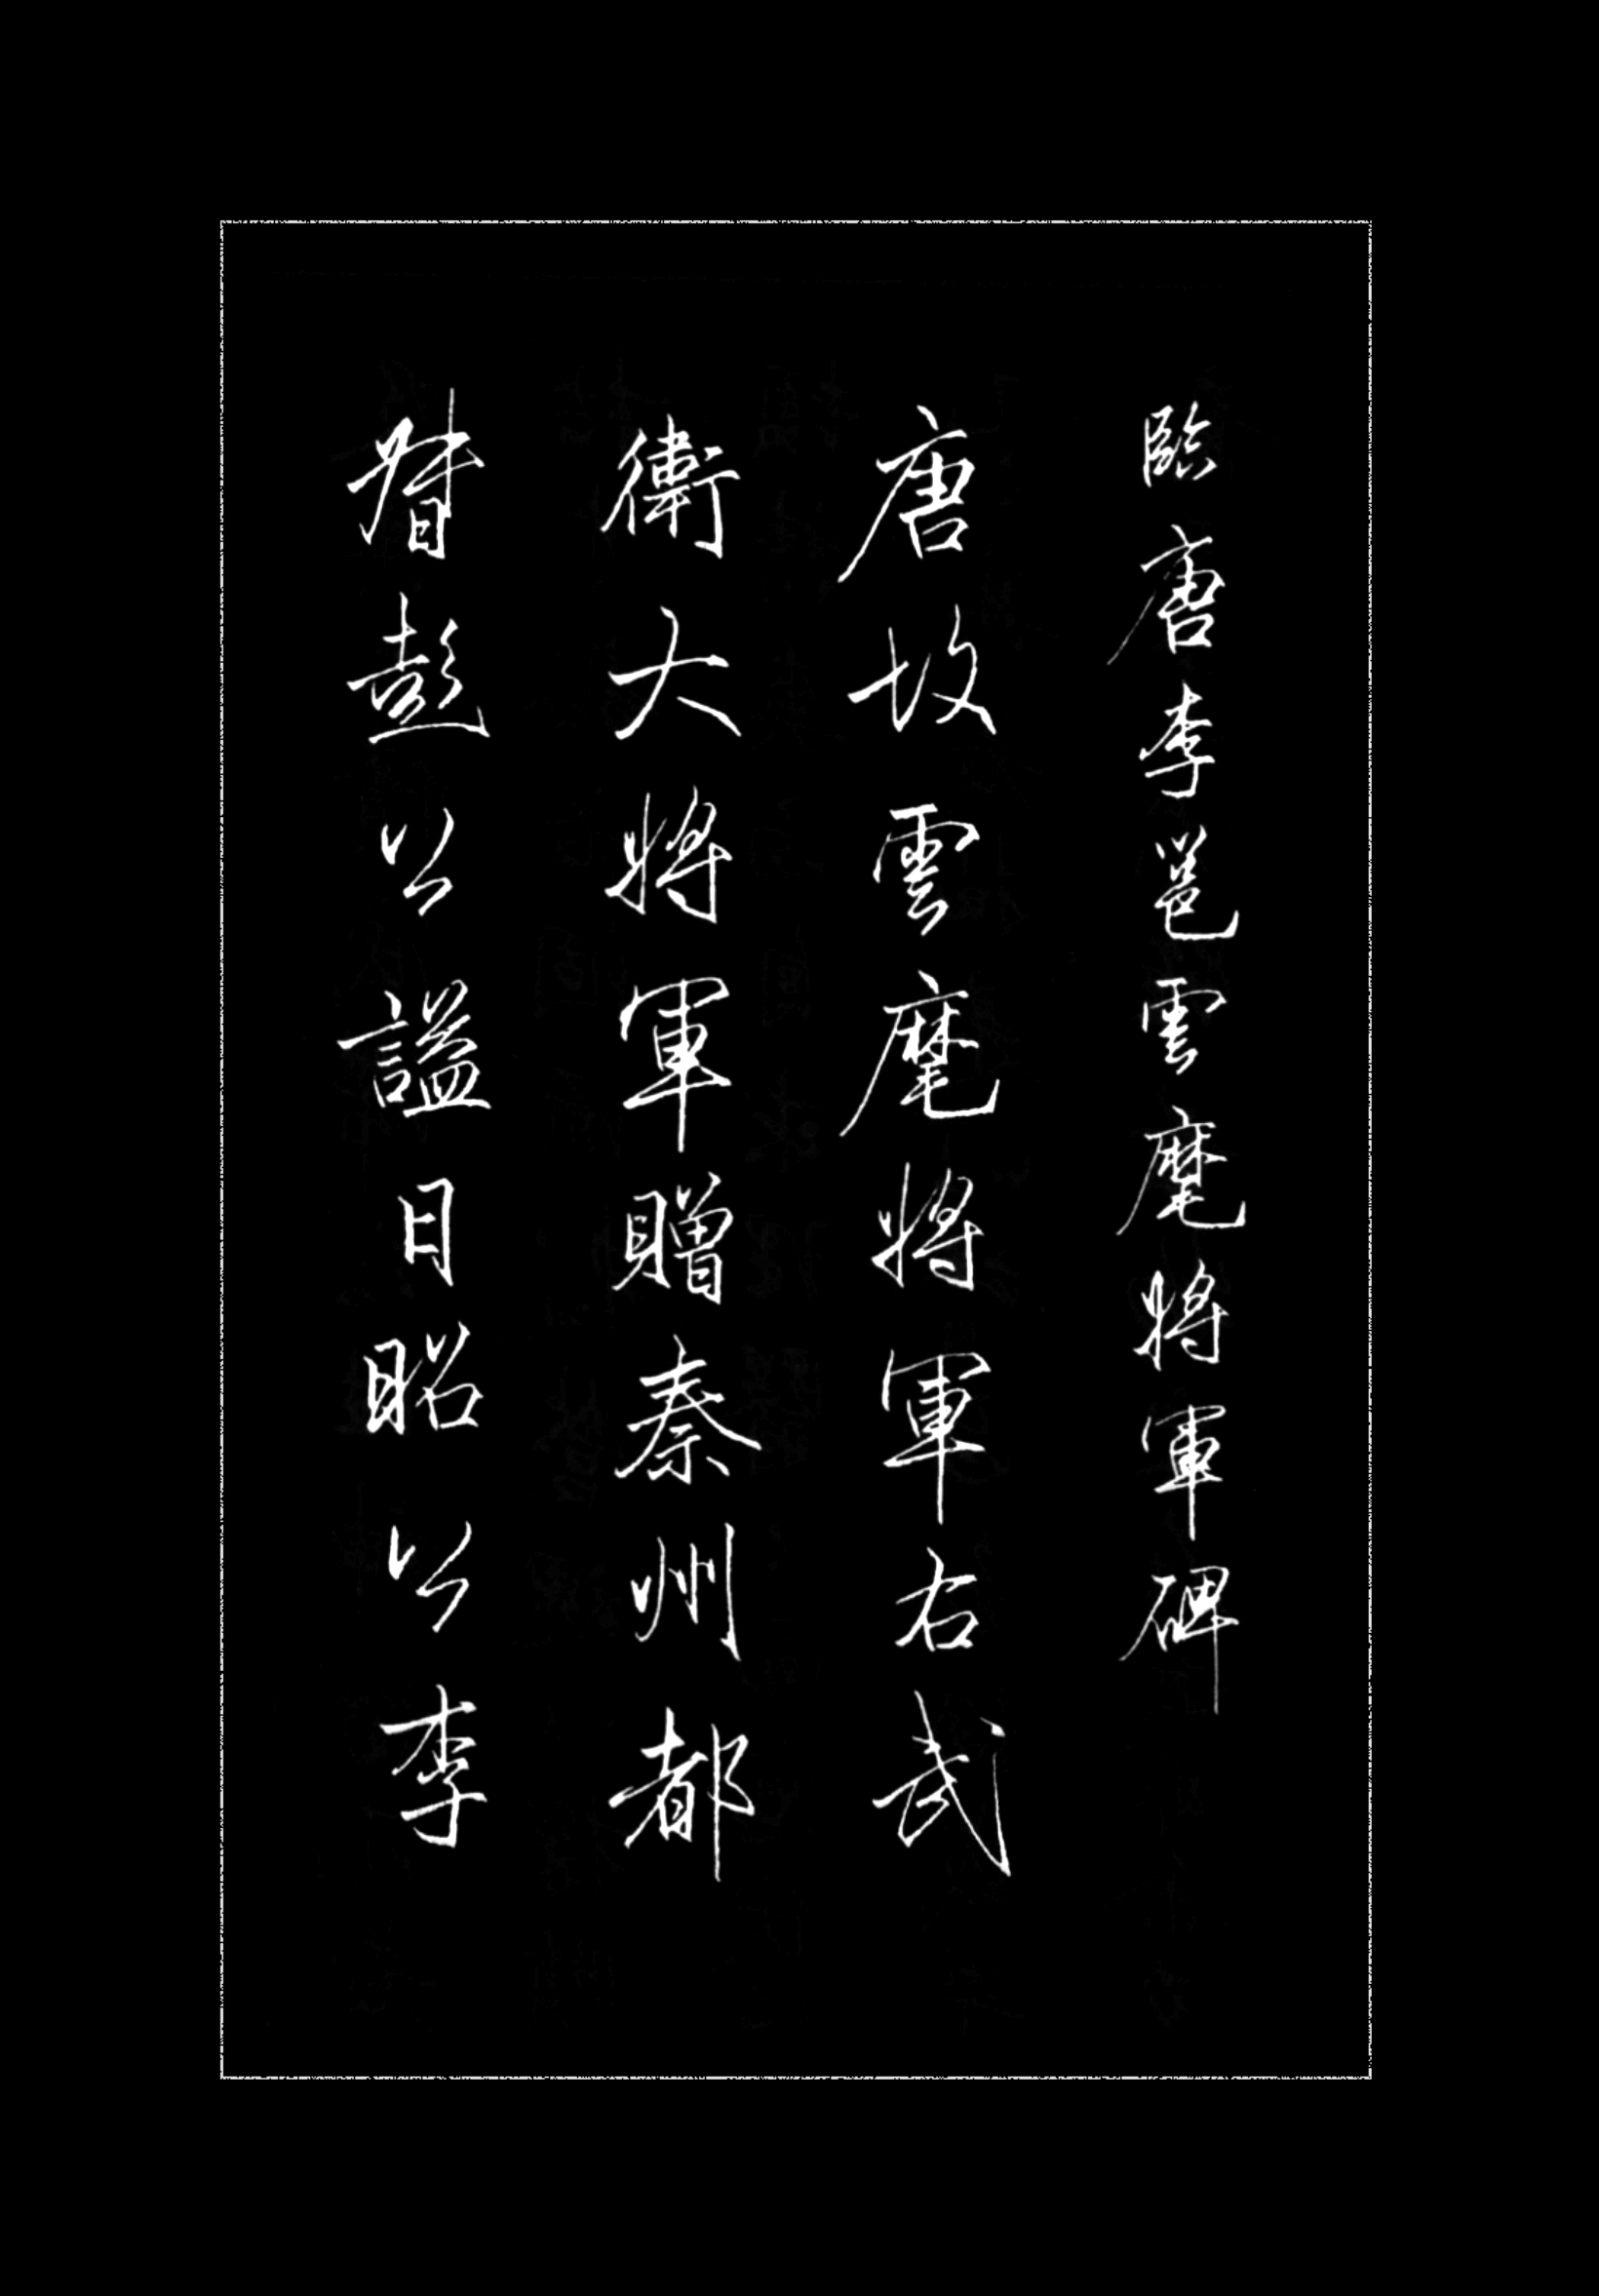 臨唐李邕雲麾將軍碑
唐故雲麾將軍右武
衛大將軍贈秦州都
督彭公謚曰昭公李